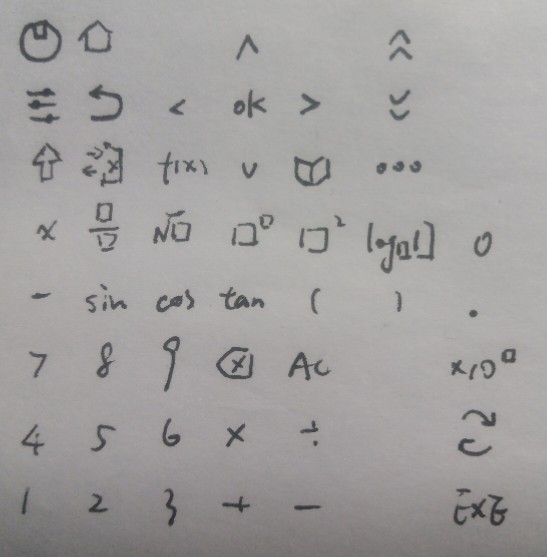 ∧
< ok >
f(x) ∨ •••
x □/□ √□ □^□ □² log□[] 0
- sin cos tan ( ) .
7 8 9 ⌫ AC ×10^□
4 5 6 × ÷
1 2 3 + - EXE